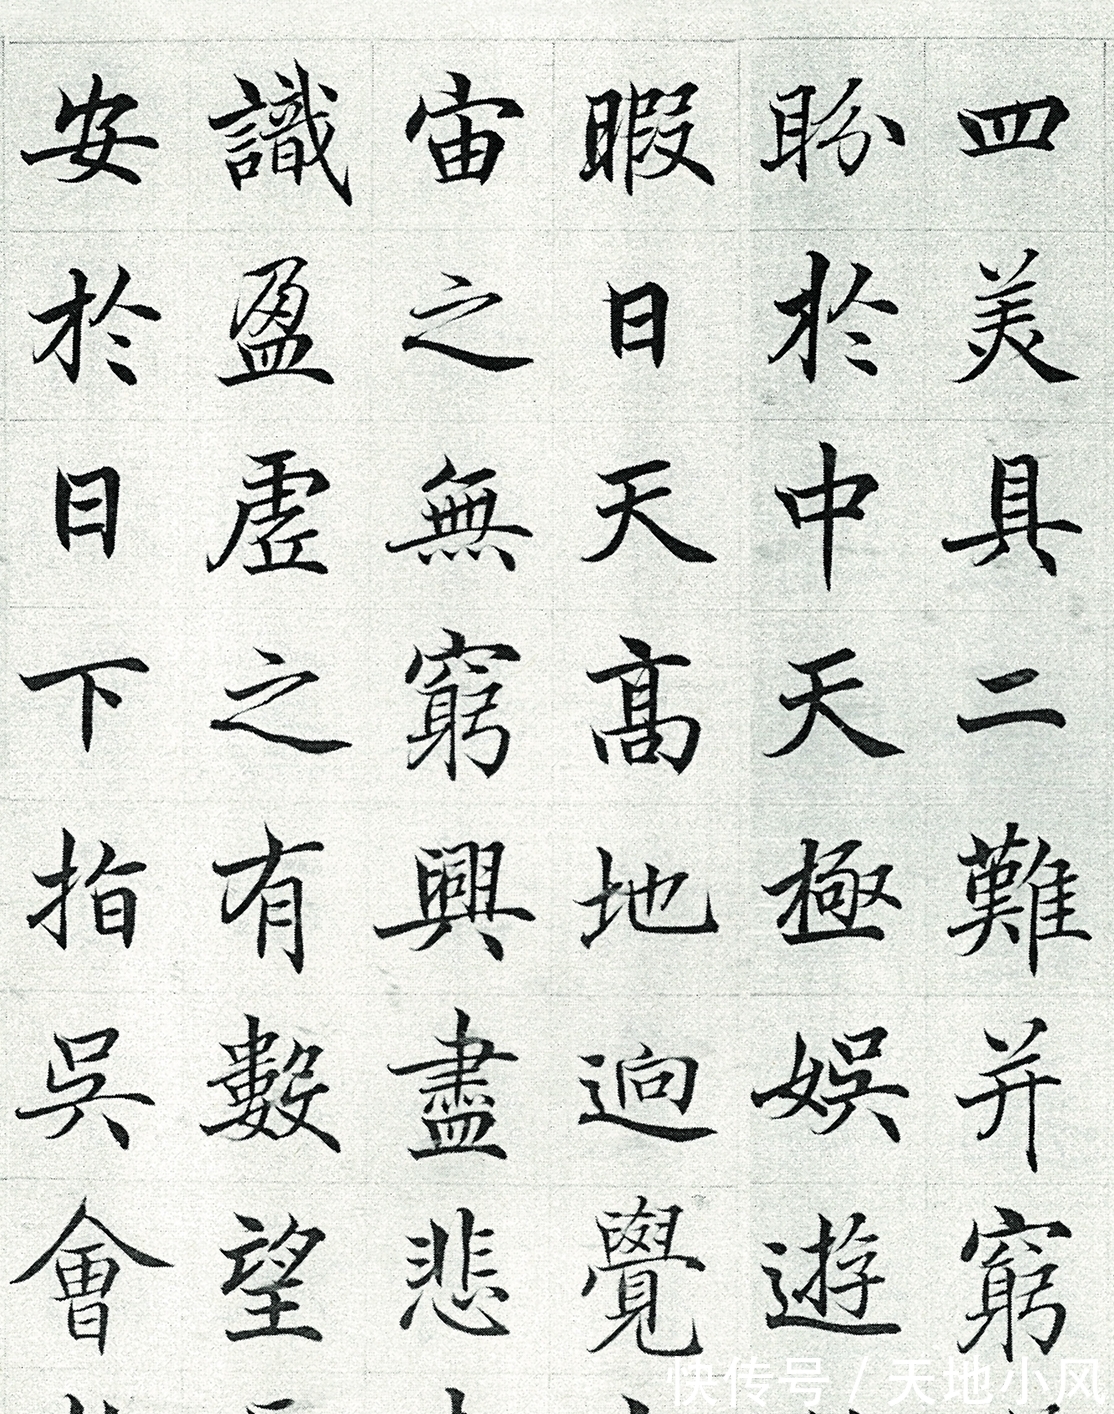 四美具二難并窮
盼於中天極娛遊
暇日天高地迥覺
宙之無窮興盡悲
識盈虛之有數望
安於日下指吳會
快传号 / 天地小风